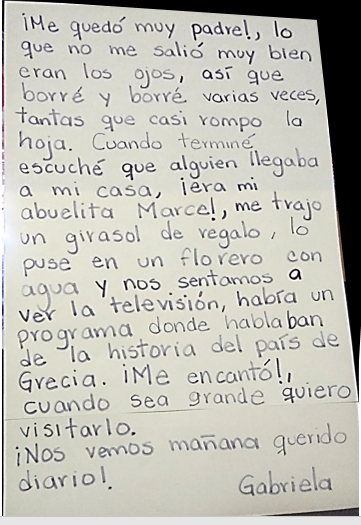 ¡Me quedó muy padre!, lo
que no me salió muy bien
eran los ojos, así que
borré y borré varias veces,
tantas que casi rompo la
hoja. Cuando terminé
escuché que alguien llegaba
a mi casa, ¡era mi
abuelita Marce!, me trajo
un girasol de regalo, lo
puse en un florero con
agua y nos sentamos a
ver la televisión, había un
programa donde hablaban
de la historia del país de
Grecia. ¡Me encantó!,
cuando sea grande quiero
visitarlo.
¡Nos vemos mañana querido
diario!
Gabriela